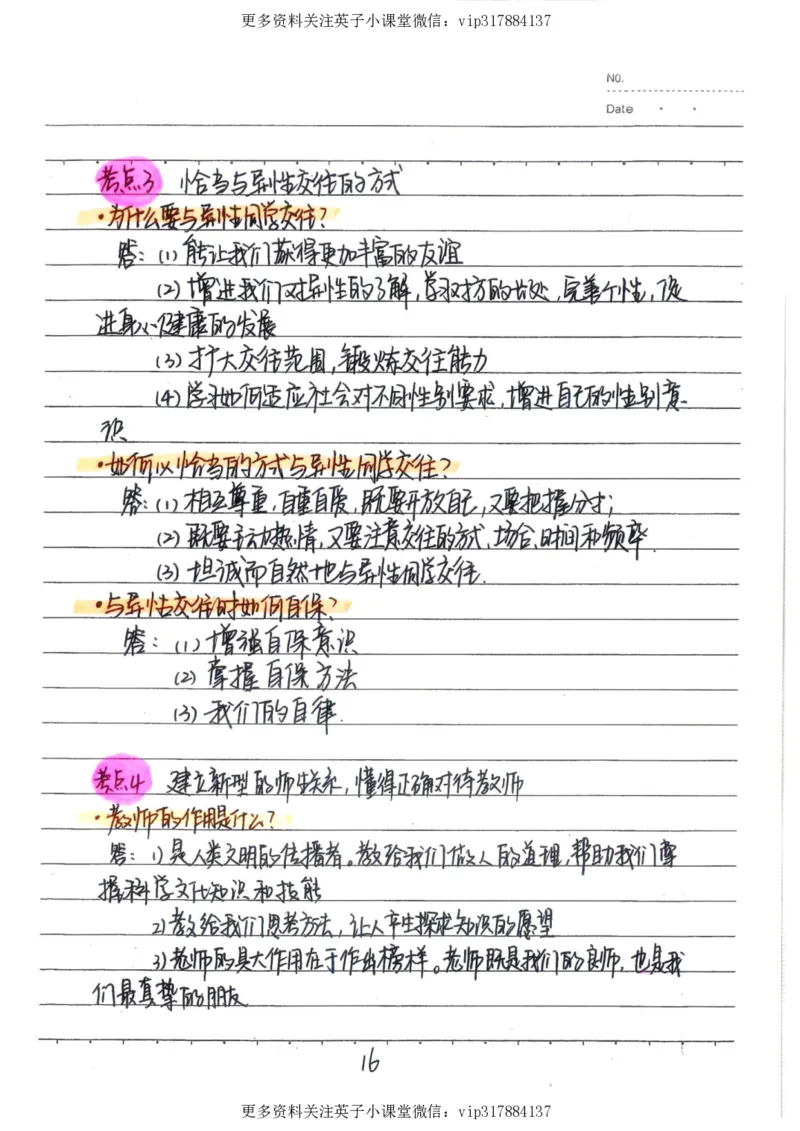 更多资料关注英子小课堂微信：vip317884137
No.
Date
考点3 恰当与异性交往的方式
·为什么要与异性同学交往？
答：(1)能让我们获得更加丰富的友谊
(2)增进我们对异性的了解，学习对方的长处，完善个性，促
进身心健康的发展
(3)扩大交往范围，锻炼交往能力
(4)学习如何适应社会对不同性别要求，增进自己的性别意
识
·如何以恰当的方式与异性同学交往？
答：(1)相互尊重，自重自爱，既要开放自己，又要把握分寸；
(2)既要主动热情，又要注意交往的方式、场合、时间和频率.
(3)坦诚而自然地与异性同学交往.
·与异性交往时如何自保？
答：(1)增强自保意识
(2)掌握自保方法
(3)我们的自律.
考点4 建立新型的师生关系，懂得正确对待教师
·教师的作用是什么？
答：1)是人类文明的传播者。教给我们做人的道理，帮助我们掌
握科学文化知识和技能
2)教给我们思考方法，让人产生探求知识的愿望
3)老师的具大作用在于作出榜样。老师既是我们的良师，也是我
们最真挚的朋友
16
更多资料关注英子小课堂微信：vip317884137